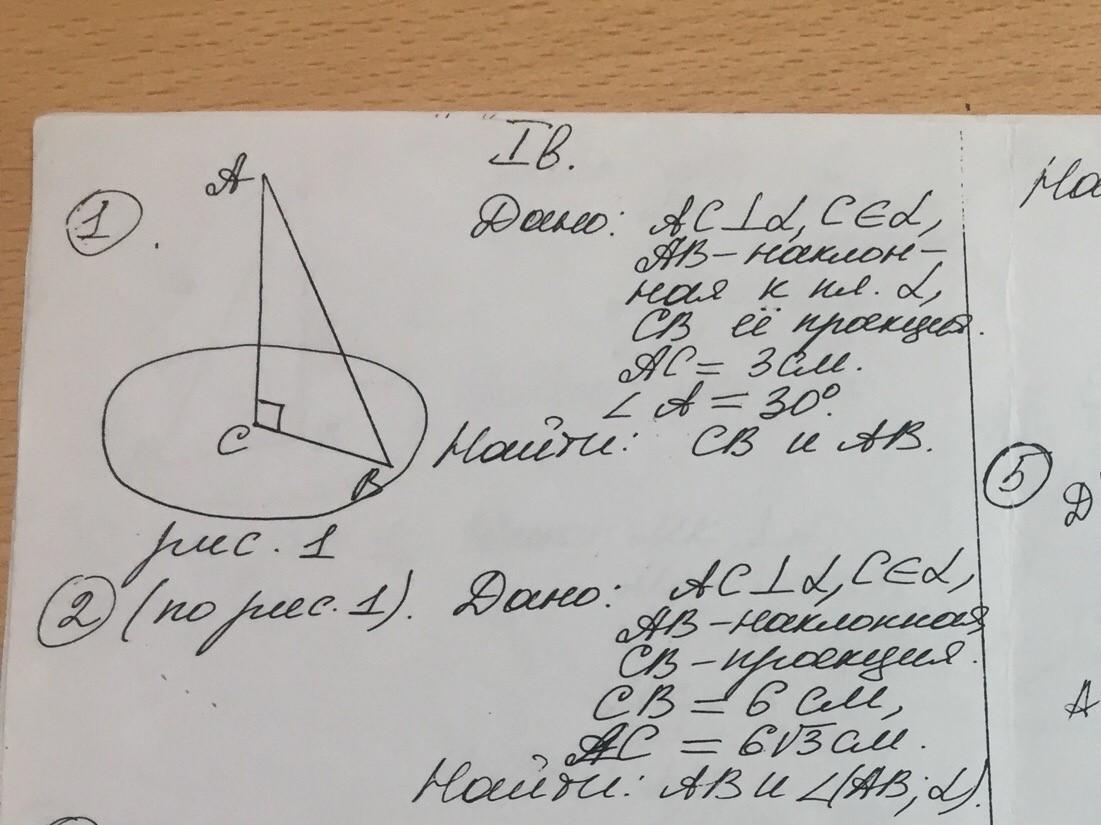 I в.
1
A
C
B
рис. 1
Дано: AC⊥α, C∈α,
AB – наклон-
ная к пл. α,
CB её проекция.
AC = 3 см.
∠A = 30°.
Найти: CB и AB.
2 (по рис. 1). Дано: AC⊥α, C∈α,
AB – наклонная
CB – проекция.
CB = 6 см,
AC = 6√3 см.
Найти: AB и ∠(AB; α).
5